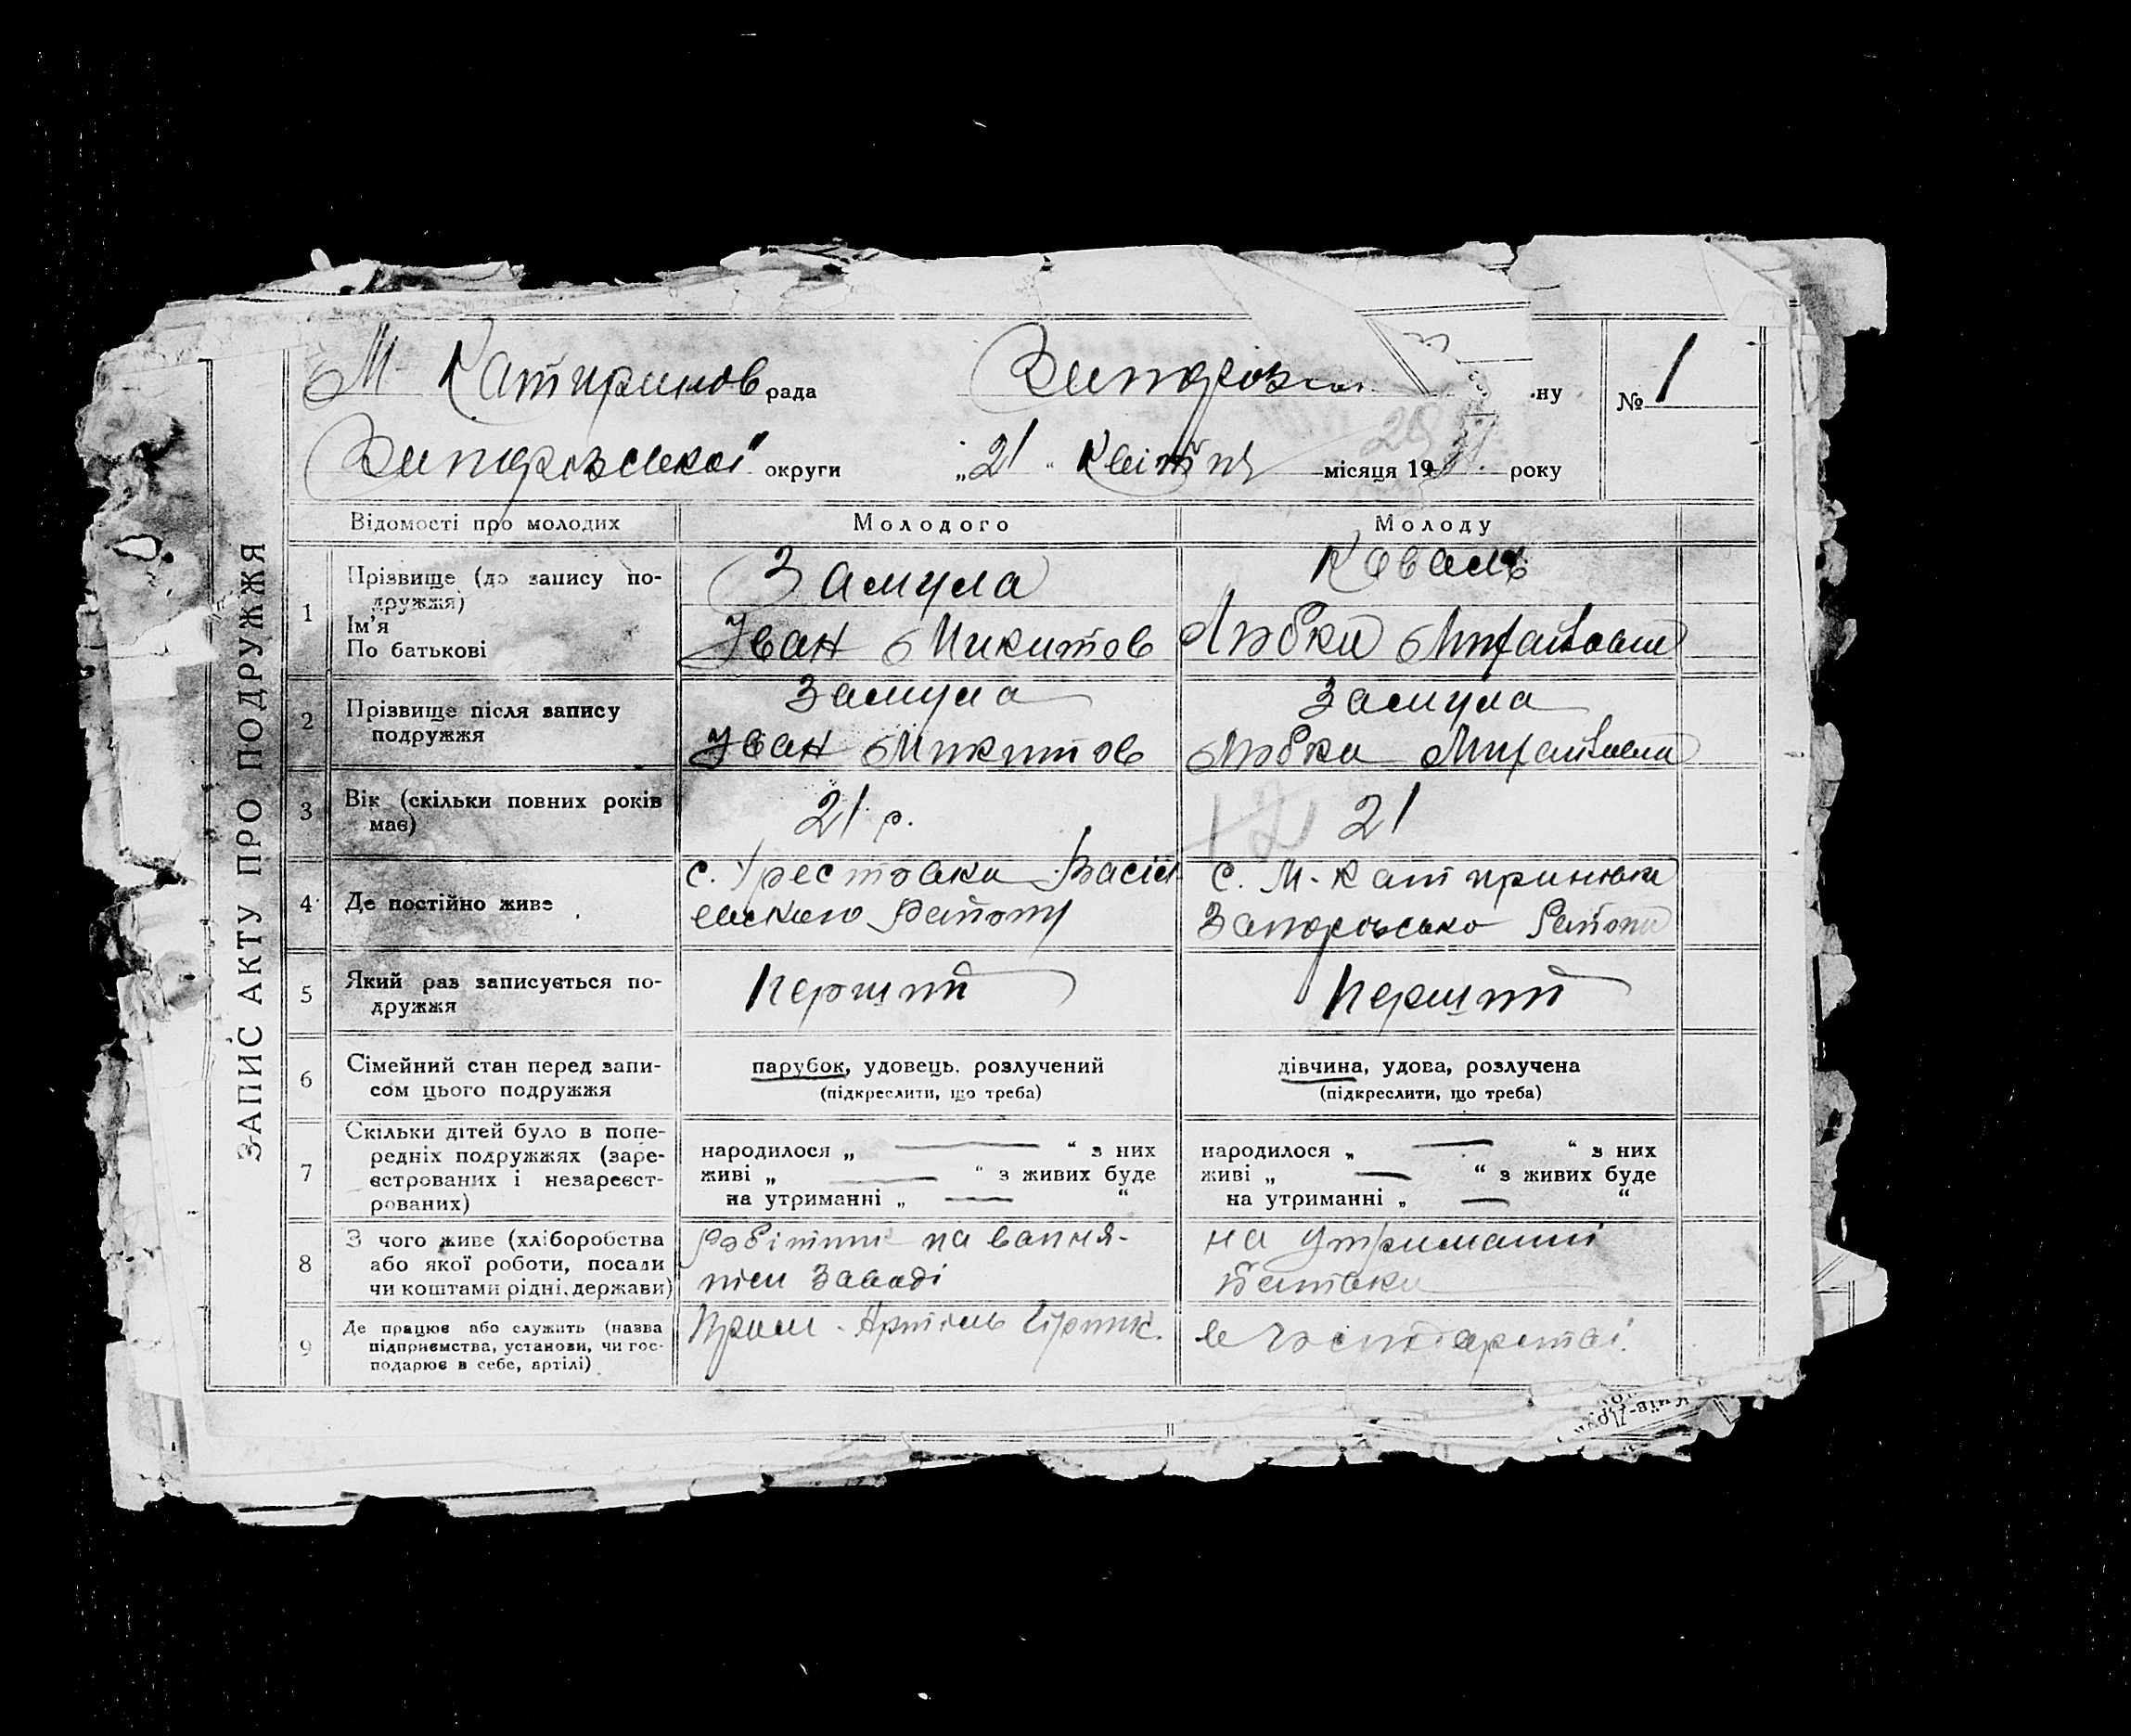 ЗАПИС АКТУ ПРО ПОДРУЖЖЯ
М Катиринов рада ну № 1
Запорізської округи „21“ Квітня місяця 1931 року
Відомості про молодих Молодого Молоду
1 Прізвище (до запису по-
дружжя)
Ім'я
По батькові
Замула
Іван Микитов
Коваль
Любка
2 Прізвище після запису
подружжя
Замула
Іван Микитов
Замула
Любка
3 Вік (скільки повних років
має)
21 р.
21
4 Де постійно живе
с. Хрестовка Васил
району
с. М-Катириновка
Запорізсько Району
5 Який раз записується по-
дружжя
Перший
Перший
6 Сімейний стан перед запи-
сом цього подружжя
парубок, удовець. розлучений
(підкреслити, що треба)
дівчина, удова, розлучена
(підкреслити, що треба)
7 Скільки дітей було в попе-
редніх подружжях (заре-
єстрованих і незареєст-
рованих)
народилося „ “ з них
живі „ “ з живих буде
на утриманні „ “
народилося „ “ з них
живі „ “ з живих буде
на утриманні „ “
8 З чого живе (хліборобства
або якої роботи, посади
чи коштами рідні, держави)
на вапня-
нім заводі
на утриманні
батька
9 Де працює або служить (назва
підприємства, установи, чи гос-
подарює в себе, артілі)
Пром. Артіль
в господарстві.